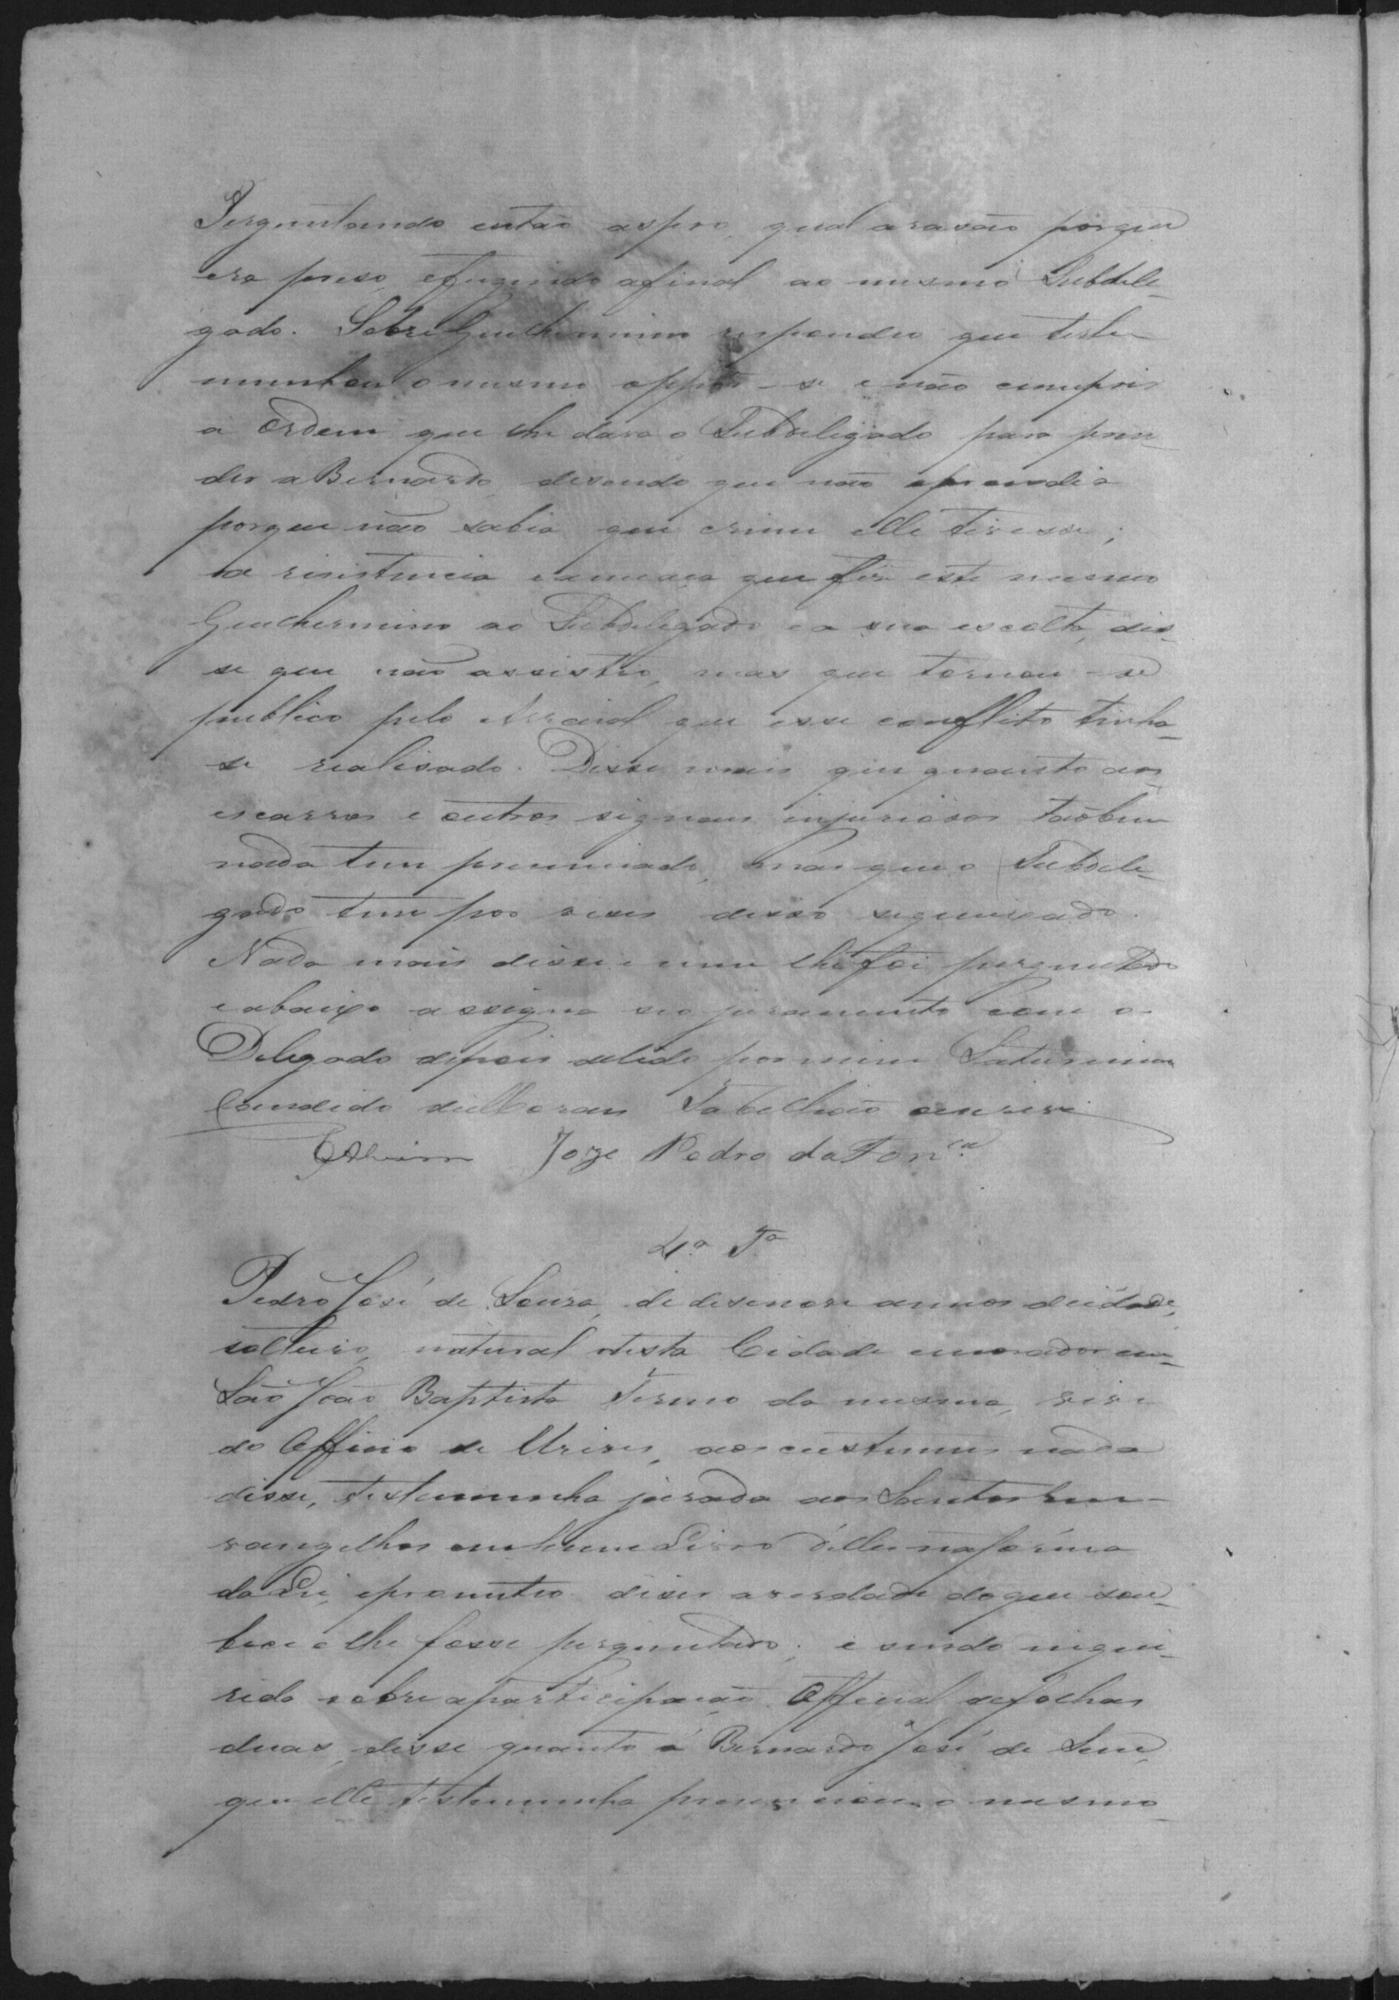 Perguntando então aspro, qual a rasão porque
era preso, e fugindo afinal ao mesmo Subdele-
gado. Sobre Guilhermino respondeu que teste-
munhou o mesmo oppôr-se e não cumprir
a Ordem que lhe dava o Subdelegado para pren-
der a Bernardo, disendo que não o prendia
porque não sabia que crime elle tivesse;
a resistencia e ameaça que fez este mesmo
Guilhermino ao Subdelegado e a sua escolta, dis-
se que não assistio, mas que tornou-se
publico pelo Arraial que esse conflito tinha-
se realisado. Disse mais que quanto aos
escarros e outros signaes injuriosos tãobem
nada tem presenciado, mas que o Subdele-
gado tem por veses disso se queixado.
Nada mais disse e nem lhe foi perguntado
e abaixo assigna seo juramento com o
Delegado depois de lido por mim Saturnino
Candido de Moraes Tabellião escrevi
CAlvim Joze Pedro da Fon.ca
4.a T.a
Pedro José de Souza, de desenove annos de idade,
solteiro, natural desta Cidade e morador em
São João Baptista Termo da mesma, vive
do Officio de Ourives, aos custumes nada
disse, testemunha jurada aos Santos Em-
vangelhos em hum Livro d'elles na forma
da Lei, e prometteo diser a verdade do que sou-
bece e lhe fosse perguntado; e sendo inqui-
rido sobre a participação Official de folhas
duas, disse quanto á Bernardo José de Sene,
que elle testemunha presenciou o mesmo